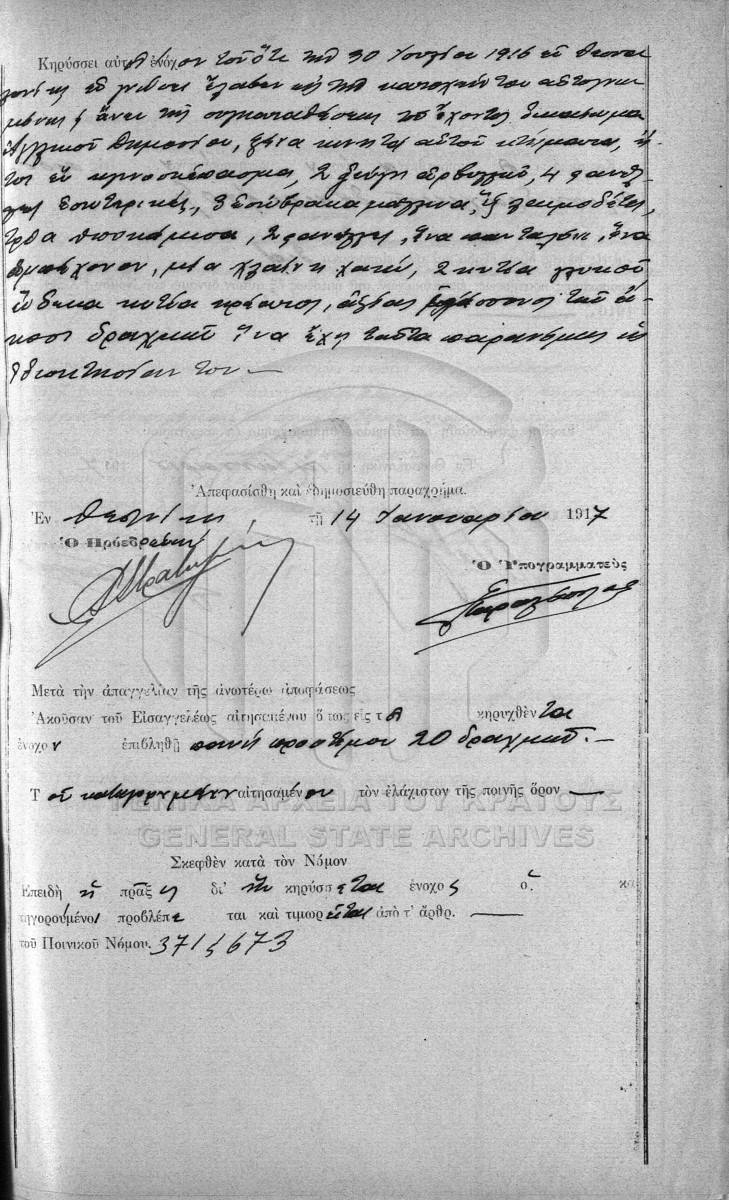 Κηρύσσει αὐτὸν ἔνοχον τοῦ ὅτι τῇ 30 Ἰουλίου 1916 ἐν Θεσσα
λονίκῃ ἐν γνώσει ἔλαβεν εἰς τὴν κατοχήν του
ἄνευ τῆς συγκαταθέσεως τοῦ ἔχοντος δικαίωμα
Ἀγγλικοῦ Δημοσίου, ξένα κινητὰ αὐτοῦ κτήματα, ἤ
τοι ἓν κλινοσκέπασμα, 2 ζεύγη ἀρβυλῶν, 4 φανέλ
λες ἐσωτερικές, 3 ἐσώβρακα μάλλινα, ἓξ λαιμοδέτας,
τρία ὑποκάμισα, 2 φανέλλες, ἕνα πανταλόνι, ἕνα
μία χλαίνη χακί, 2 κυτία γλυκοῦ
ἕνδεκα κυτία κρέατος, ἀξίας ἐλάσσονος τῶν εἴ-
κοσι δραχμῶν ἵνα ἔχῃ ταῦτα παρανόμως εἰς
ἰδιοκτησίαν του.—
Ἀπεφασίσθη καὶ ἐδημοσιεύθη παραχρῆμα.
Ἐν Θεσ/νίκῃ τῇ 14 Ἰανουαρίου 1917
Ὁ Πρόεδρος
Ὁ Ὑπογραμματεὺς
Μετὰ τὴν ἀπαγγελίαν τῆς ἀνωτέρω ἀποφάσεως
Ἀκοῦσαν τοῦ Εἰσαγγελέως αἰτησαμένου ὅπως εἰς τὸ κηρυχθέντα
ἔνοχον ἐπιβληθῇ ποινὴ προστίμου 20 δραχμῶν.—
Τοῦ κατηγορουμένου αἰτησαμένου τὸν ἐλάχιστον τῆς ποινῆς ὅρον —
ΓΕΝΙΚΑ ΑΡΧΕΙΑ ΤΟΥ ΚΡΑΤΟΥΣ
GENERAL STATE ARCHIVES
Σκεφθὲν κατὰ τὸν Νόμον
Ἐπειδὴ ἡ πρᾶξις δι' ἣν κηρύσσεται ἔνοχος ὁ κα
τηγορούμενος προβλέπεται καὶ τιμωρεῖται ἀπὸ τ' ἄρθρ. —
τοῦ Ποινικοῦ Νόμου. 371 ς 673